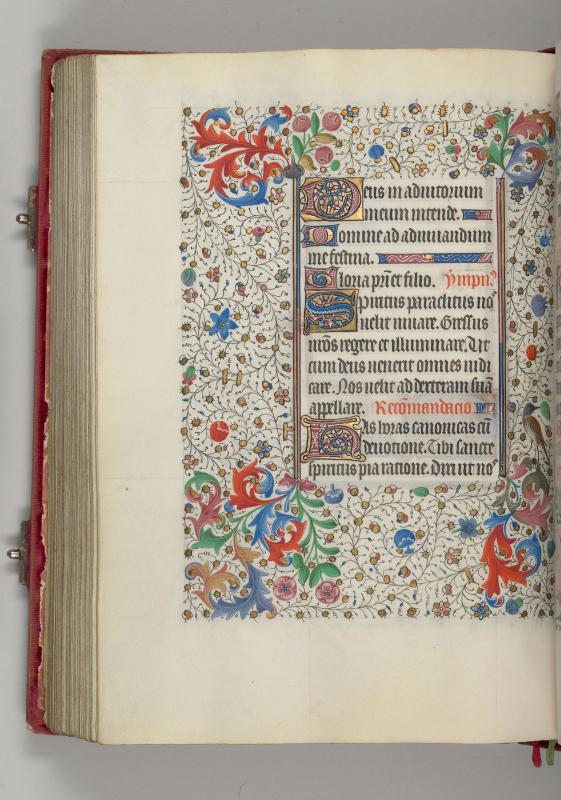 Deus in adiutorium
meum intende.
Domine ad adiuuandum
me festina.
Gloria pr̄i et filio. ẏmpn?
Spiritus paraclitus no᷒
uelit iuuare. Gressus
nr̄os regere et illuminare. Vt
cum deus uenerit omnes iudi
care. Nos uelit ad dexteram suā
appellare. Recōmandacio
Has horas canonicas cū
deuotione. Tibi sancte
spiritus pia ratione. Dixi ut no᷒